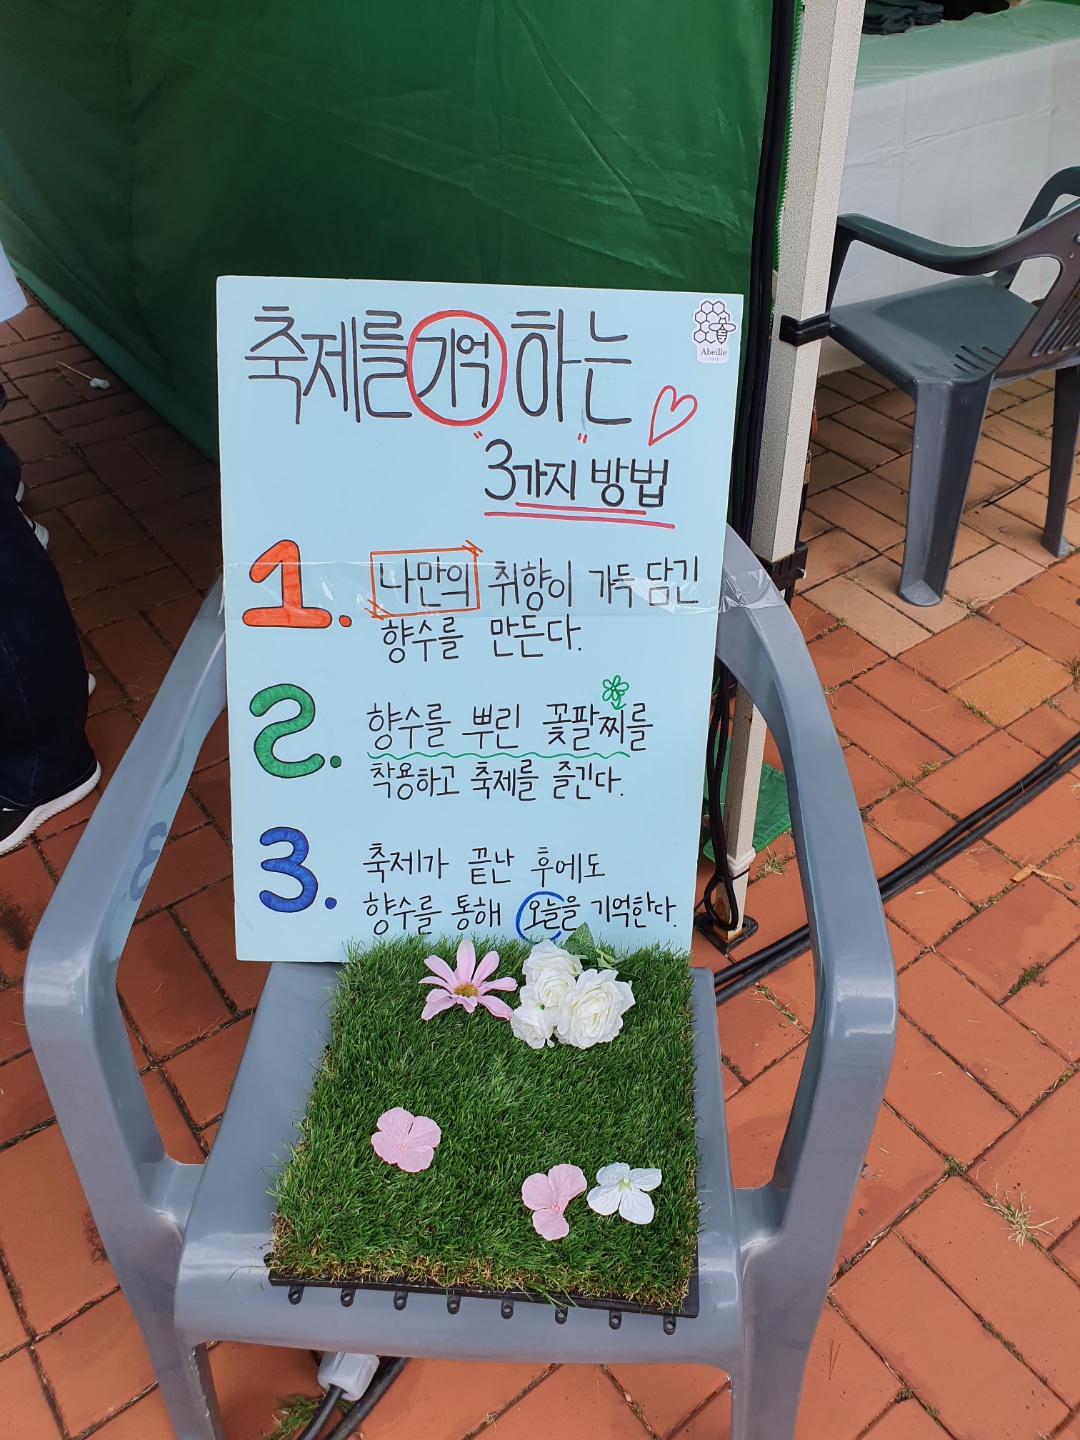 축제를 기억하는
Abeille
"3가지" 방법
1. 나만의 취향이 가득 담긴
향수를 만든다.
2. 향수를 뿌린 꽃팔찌를
착용하고 축제를 즐긴다.
3. 축제가 끝난 후에도
향수를 통해 오늘을 기억한다.